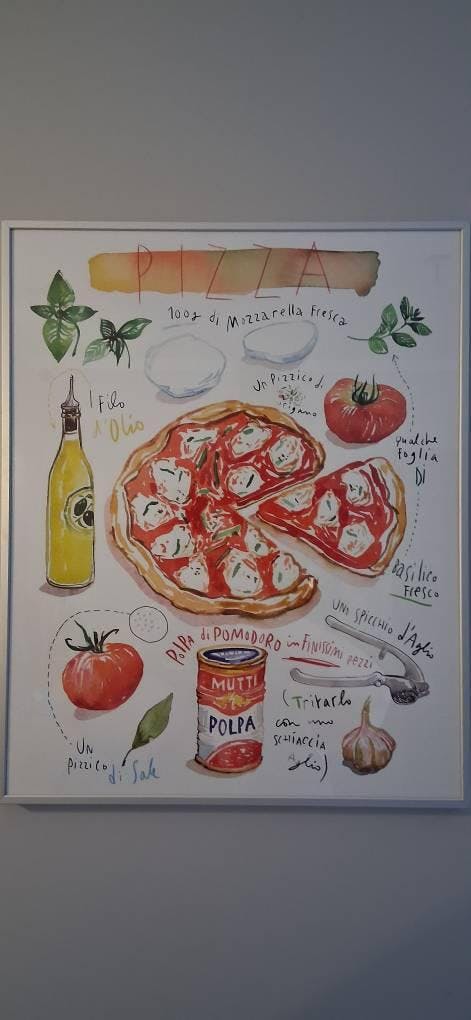 PIZZA
100g di Mozzarella Fresca
Un Pizzico di
origano
1 Filo
d'Olio
qualche
Foglia
DI
Basilico
Fresco
uno spicchio d'Aglio
POLPA di POMODORO in FINISSIMI pezzi
MUTTI
POLPA
(Tritarlo
con uno
SCHIACCIA
Aglio)
UN
Pizzico
di Sale